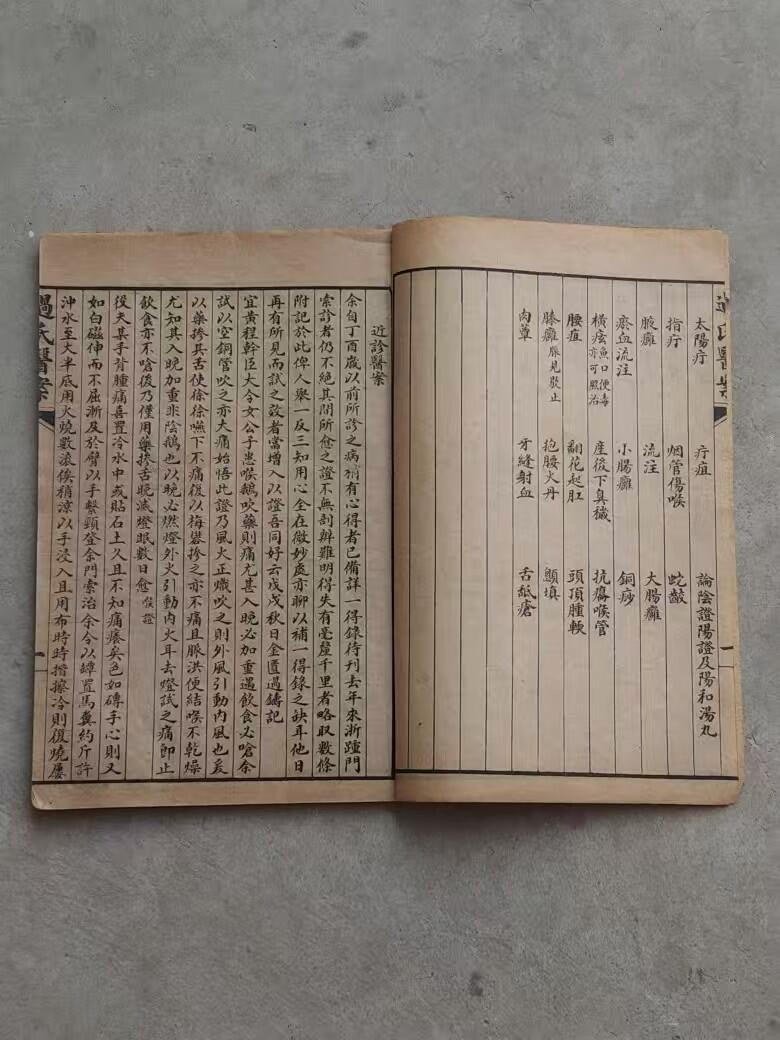 過氏醫案
一
太陽疔　疔疽　論陰證陽證及陽和湯丸
指疔　烟管傷喉　蛇齧
腋癰　流注　大腸癰
瘀血流注　小腸癰　銅痧
橫痃魚口便毒亦可照治　產後下臭穢　喉管
腰疽　翻花起肛　頭頂腫軟
膝癰　抱腰火丹　顫填
肉蕈　牙縫射血　舌舐瘡
近診醫案
余自丁酉歲以前所診之病稍有心得者已備詳一得錄待刊去年來浙踵門
索診者仍不絕其間所愈之證不無剖辨難明得失有毫釐千里者略取數條
附記於此俾人舉一反三知用心全在微妙處亦聊以補一得錄之缺耳他日
再有所見而試之效者當增入以證吾同好云戊戌秋日金匱過鑄記
宜黃程幹臣大令女公子患喉鵝吹藥則痛尤甚入晚必加重過飲食必嗆余
試以空銅管吹之亦大痛始悟此證乃風火正熾吹之則外風引動內風也爰
以藥摻其舌使徐徐嚥下不痛復以梅礬摻之亦不痛且脈洪便結喉不乾燥
尤知其入晚加重非陰鵝也以晚必燃燈外火引動內火耳去燈試之痛卽止
飲食亦不嗆後乃僅用藥摻舌晚滅燈眠數日愈喉證
役夫某手背腫痛喜置冷水中或貼石上久且不知痛癢矣色如磚手心則又
如白磁伸而不屈漸及於臂以手繫頸登余門索治余令以罈置馬糞約斤許
沖水至大半底用火燒數滾俟稍涼以手浸入且用布時時揩擦冷則復燒屢
過氏醫案
一